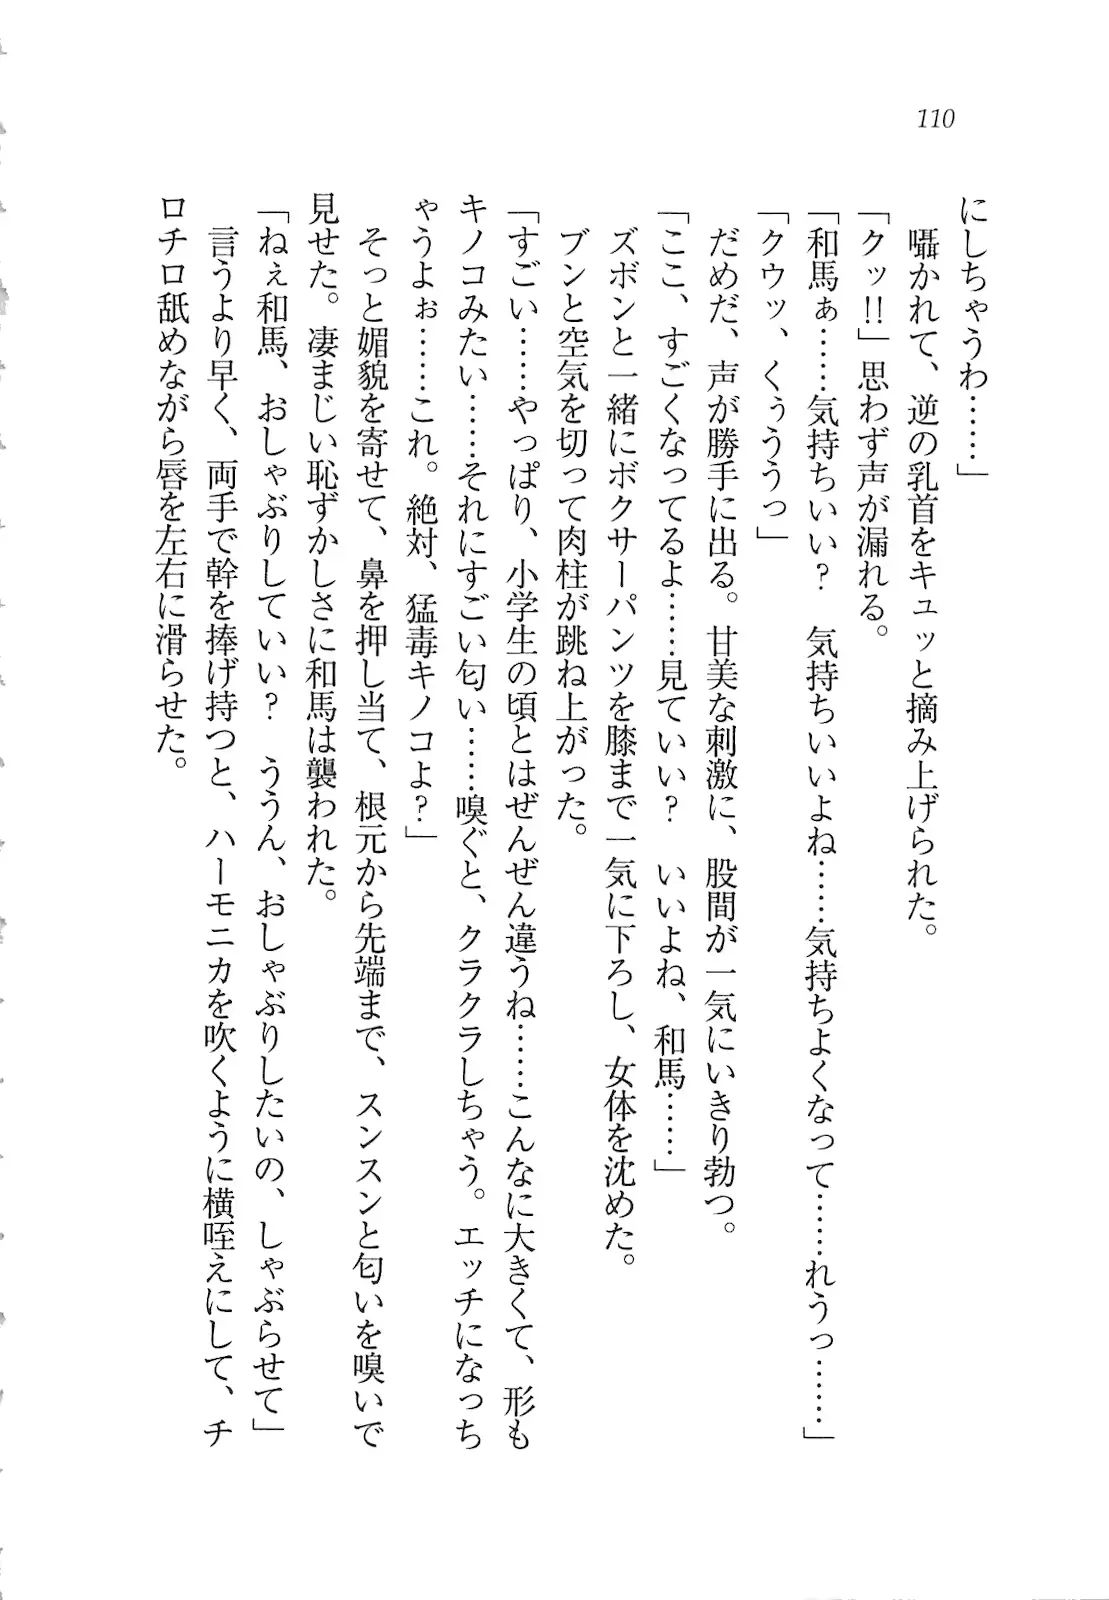 110
にしちゃうわ……」
囁かれて、逆の乳首をキュッと摘み上げられた。
「クッ!!」思わず声が漏れる。
「和馬ぁ……気持ちいい？　気持ちいいよね……気持ちよくなって……れうっ……」
「クウッ、くぅううっ」
だめだ、声が勝手に出る。甘美な刺激に、股間が一気にいきり勃つ。
「ここ、すごくなってるよ……見ていい？　いいよね、和馬……」
ズボンと一緒にボクサーパンツを膝まで一気に下ろし、女体を沈めた。
ブンと空気を切って肉柱が跳ね上がった。
「すごい……やっぱり、小学生の頃とはぜんぜん違うね……こんなに大きくて、形も
キノコみたい……それにすごい匂い……嗅ぐと、クラクラしちゃう。エッチになっち
ゃうよぉ……これ。絶対、猛毒キノコよ？」
そっと媚貌を寄せて、鼻を押し当て、根元から先端まで、スンスンと匂いを嗅いで
見せた。凄まじい恥ずかしさに和馬は襲われた。
「ねぇ和馬、おしゃぶりしていい？　ううん、おしゃぶりしたいの、しゃぶらせて」
言うより早く、両手で幹を捧げ持つと、ハーモニカを吹くように横咥えにして、チ
ロチロ舐めながら唇を左右に滑らせた。